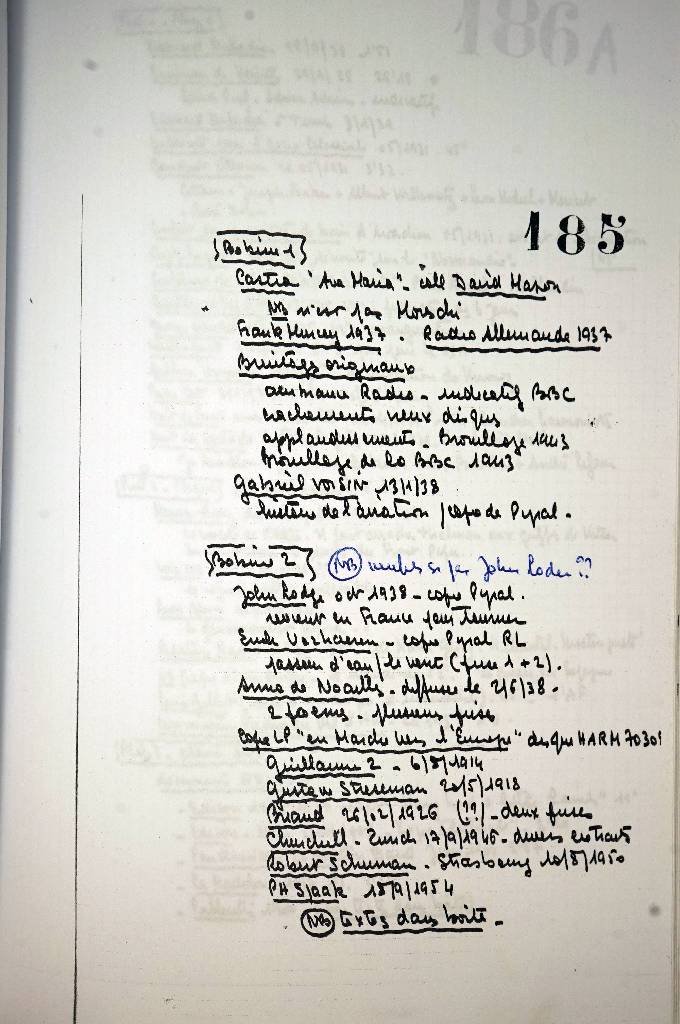 185
Bobine 1
Castra "Ava Maria" - coll David Mason
NB n'est pas Moreschi
Frank Hursey 1937 - Radio Allemande 1937
Bruitages originaux
ambiance Radio - indicatif BBC
crachements vieux disques
applaudissements - Brouillage 1943
Brouillage de la BBC 1943
Gabriel VOISIN 13/1/38
histoire de l'aviation / copie de Pyral -
Bobine 2 NB John Loder ??
John Lodge oct 1938 - copie Pyral.
revient en France pour tourner
Emile Verhaeren - copie Pyral RL
passeur d'eau / le vent (prise 1 + 2).
Anna de Noailles - diffusé le 2/6/38 -
2 poèmes - plusieurs prises
Copie LP "en Marche vers l'Europe" disque HARM 70301
Guillaume 2 - 6/8/1914
Gustav Streseman 20/5/1918
Briand 26/02/1926 (??) - deux prises
Churchill - Zurich 17/9/1946 - divers extraits
Robert Schuman - Strasbourg 10/8/1950
PH Spaak 18/9/1954
NB textes dans boîte -